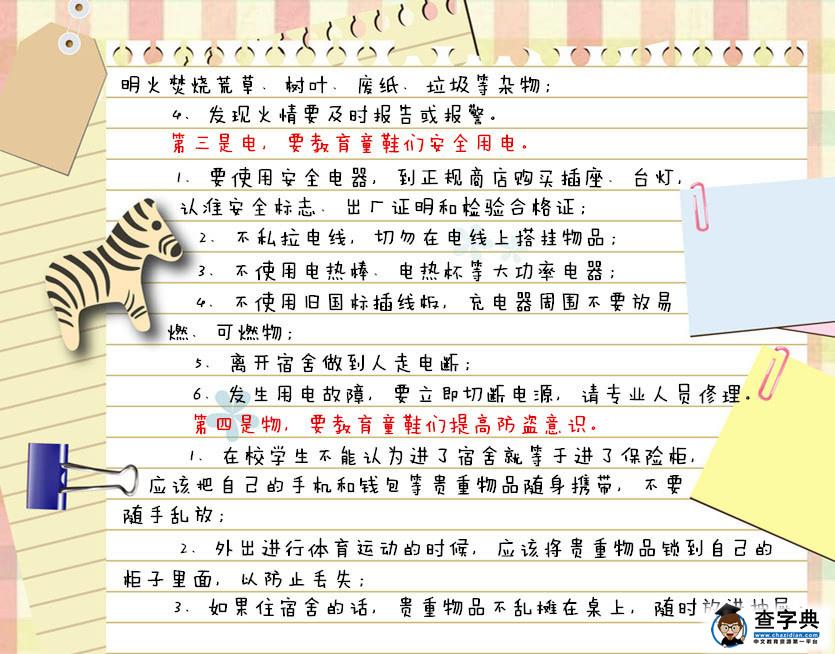 明火焚烧荒草、树叶、废纸、垃圾等杂物；
4、发现火情要及时报告或报警。
第三是电，要教育童鞋们安全用电。
1、要使用安全电器，到正规商店购买插座、台灯，
认准安全标志、出厂证明和检验合格证；
2、不私拉电线，切勿在电线上搭挂物品；
3、不使用电热棒、电热杯等大功率电器；
4、不使用旧国标插线板，充电器周围不要放易
燃、可燃物；
5、离开宿舍做到人走电断；
6、发生用电故障，要立即切断电源，请专业人员修理。
第四是物，要教育童鞋们提高防盗意识。
1、在校学生不能认为进了宿舍就等于进了保险柜，
应该把自己的手机和钱包等贵重物品随身携带，不要
随手乱放；
2、外出进行体育运动的时候，应该将贵重物品锁到自己的
柜子里面，以防止丢失；
3、如果住宿舍的话，贵重物品不乱摊在桌上，随时放进抽屉
查字典
www.chazidian.com
中文教育资源第一平台